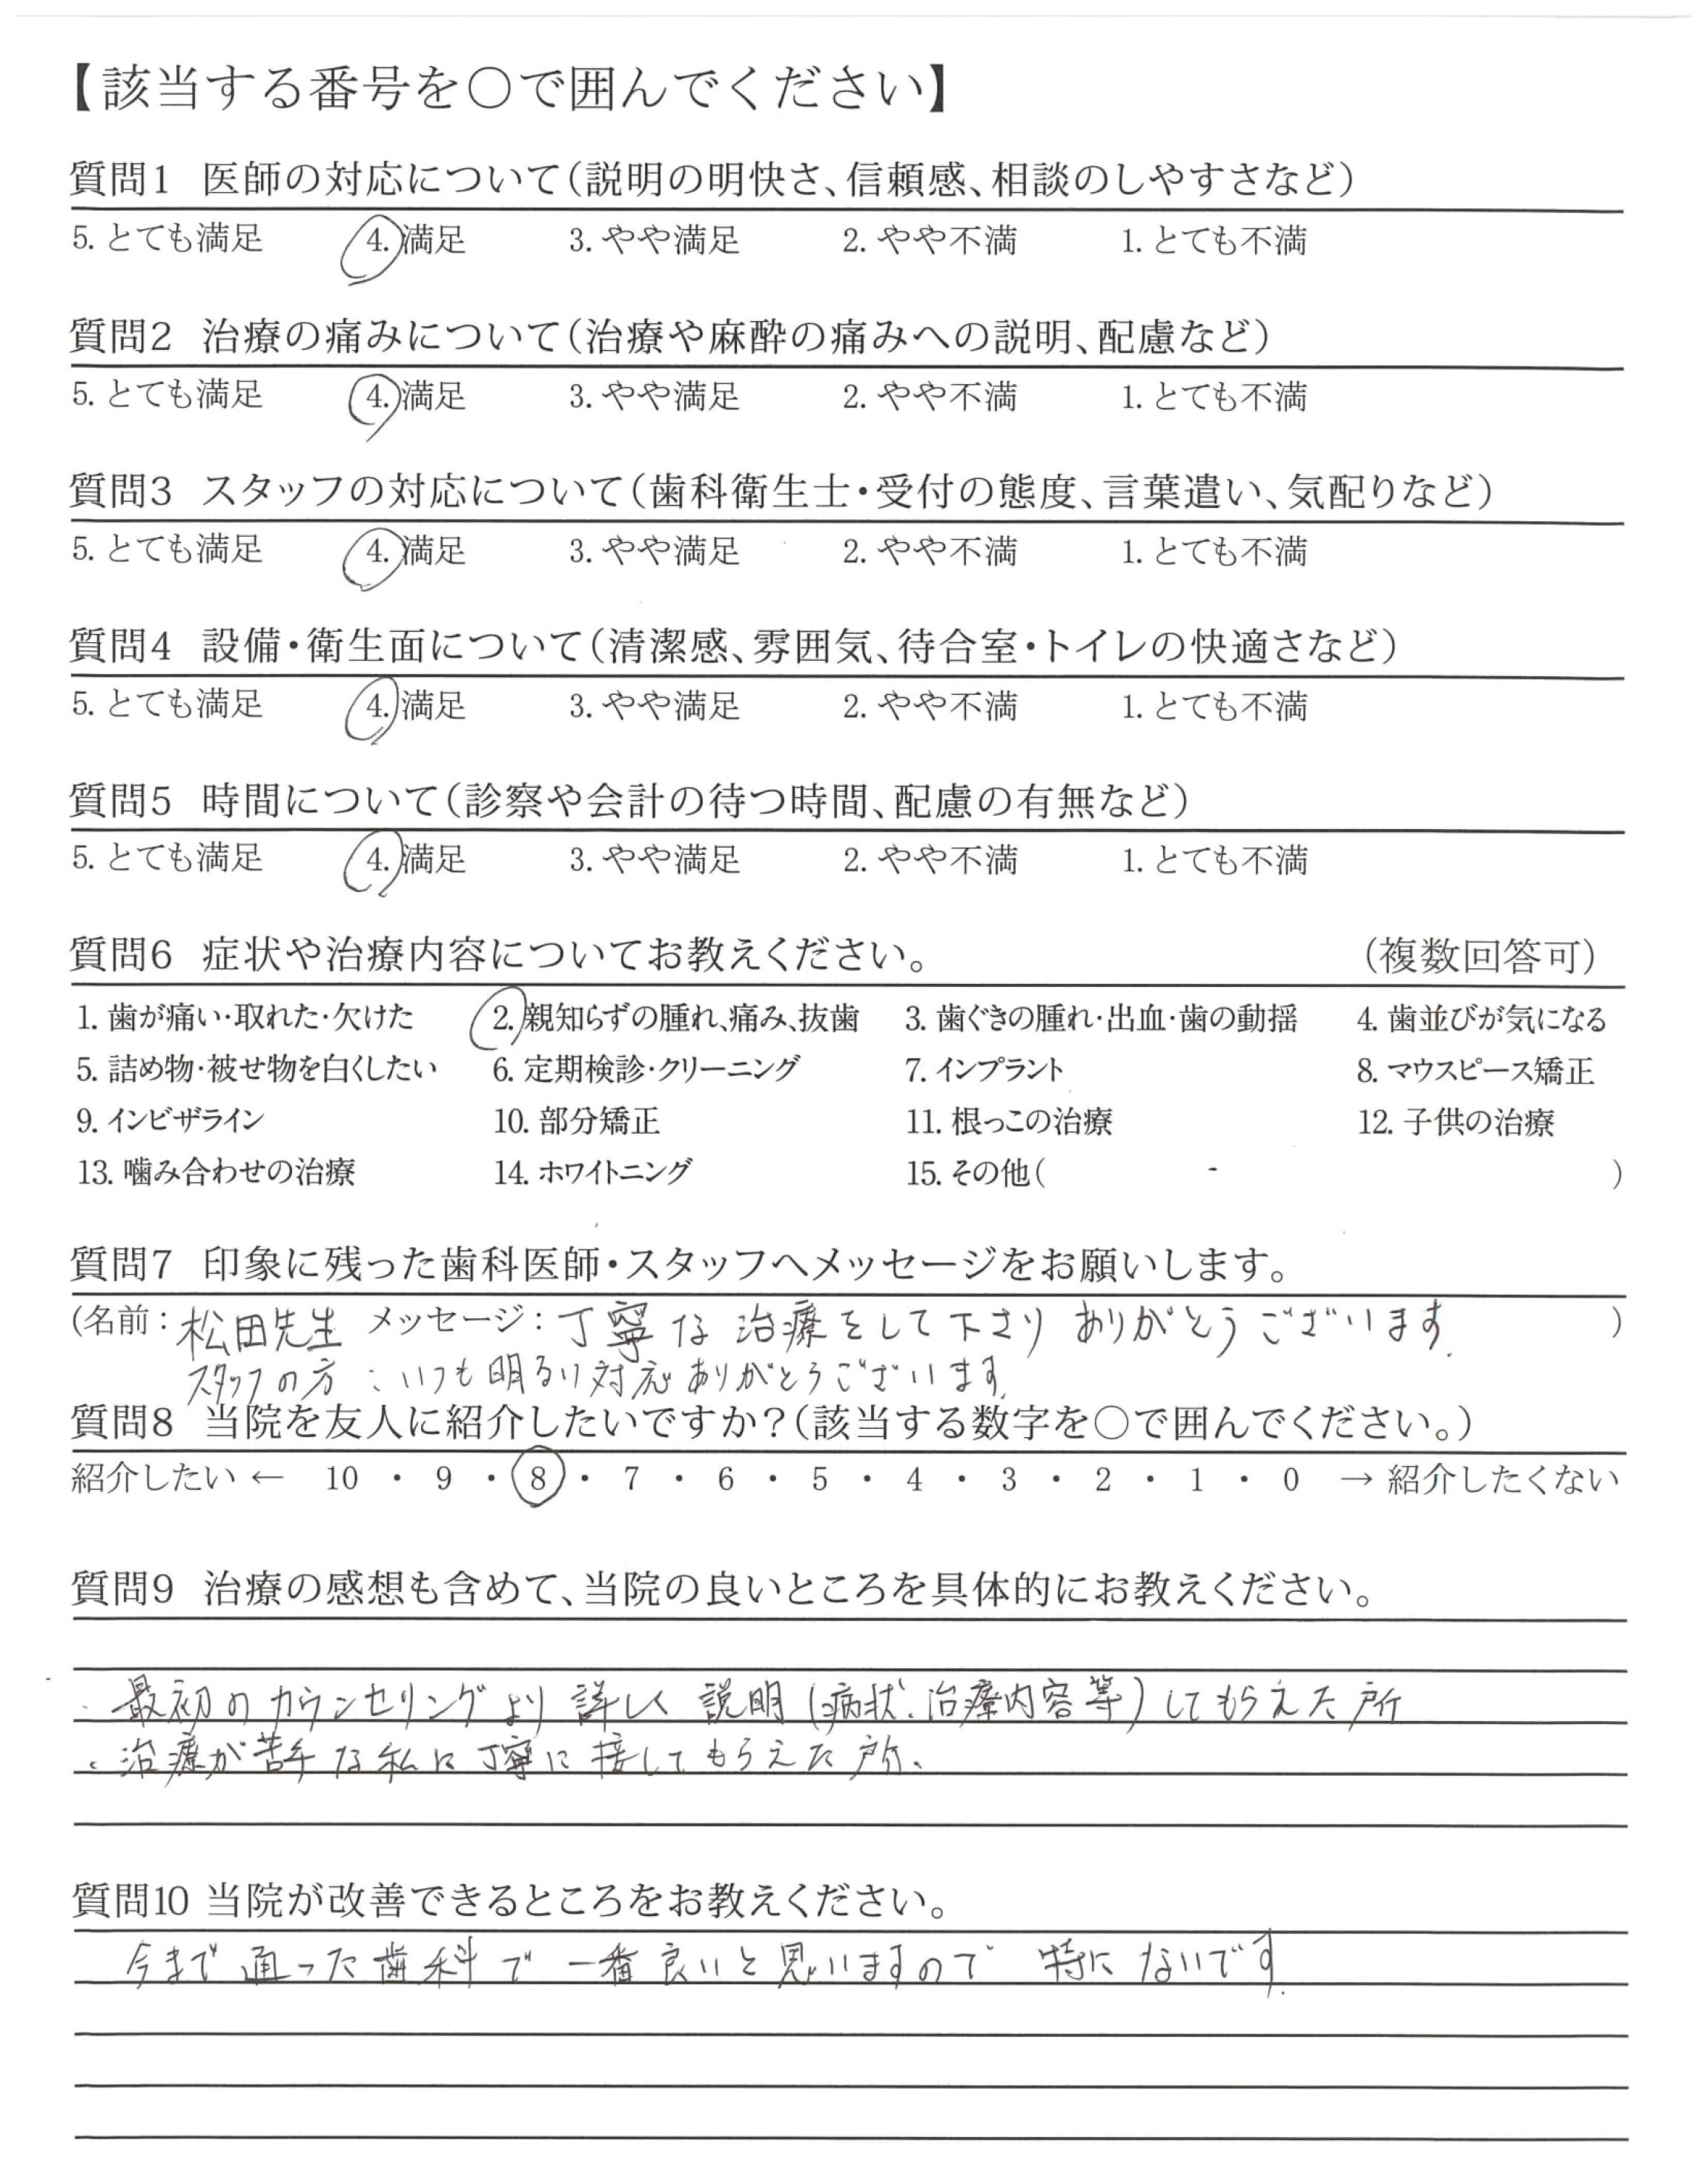 【該当する番号を〇で囲んでください】
質問1 医師の対応について(説明の明快さ、信頼感、相談のしやすさなど)
5. とても満足 4. 満足 3. やや満足 2. やや不満 1. とても不満
質問2 治療の痛みについて(治療や麻酔の痛みへの説明、配慮など)
5. とても満足 4. 満足 3. やや満足 2. やや不満 1. とても不満
質問3 スタッフの対応について(歯科衛生士・受付の態度、言葉遣い、気配りなど)
5. とても満足 4. 満足 3. やや満足 2. やや不満 1. とても不満
質問4 設備・衛生面について(清潔感、雰囲気、待合室・トイレの快適さなど)
5. とても満足 4. 満足 3. やや満足 2. やや不満 1. とても不満
質問5 時間について(診察や会計の待つ時間、配慮の有無など)
5. とても満足 4. 満足 3. やや満足 2. やや不満 1. とても不満
質問6 症状や治療内容についてお教えください。 (複数回答可)
1. 歯が痛い・取れた・欠けた 2. 親知らずの腫れ、痛み、抜歯 3. 歯ぐきの腫れ・出血・歯の動揺 4. 歯並びが気になる
5. 詰め物・被せ物を白くしたい 6. 定期検診・クリーニング 7. インプラント 8. マウスピース矯正
9. インビザライン 10. 部分矯正 11. 根っこの治療 12. 子供の治療
13. 噛み合わせの治療 14. ホワイトニング 15. その他( )
質問7 印象に残った歯科医師・スタッフへメッセージをお願いします。
(名前：松田先生 メッセージ：丁寧な治療をして下さりありがとうございます. )
スタッフの方：いつも明るい対応ありがとうございます.
質問8 当院を友人に紹介したいですか？(該当する数字を〇で囲んでください。)
紹介したい ← 10 ・ 9 ・ 8 ・ 7 ・ 6 ・ 5 ・ 4 ・ 3 ・ 2 ・ 1 ・ 0 → 紹介したくない
質問9 治療の感想も含めて、当院の良いところを具体的にお教えください。
・最初のカウンセリングより詳しく説明(病状、治療内容等)してもらえた所
・治療が苦手な私に丁寧に接してもらえた所、
質問10 当院が改善できるところをお教えください。
今まで通った歯科で一番良いと思いますので特にないです.